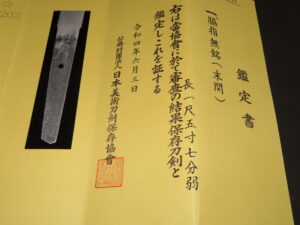 鑑定書
一、脇指 無銘(末関)
長一尺五寸七分弱
右は當協會に於て審査の結果保存刀剣と
鑑定しこれを証する
令和四年六月三日
公益財団法人日本美術刀剣保存協會